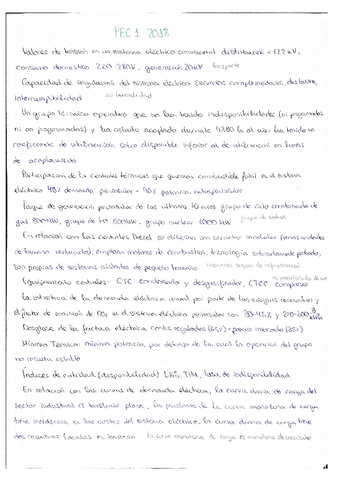 PEC 1 2018
Valores de tensión en un sistema eléctrico convencional distribución < 132 kV,
consumo doméstico 220-380V, generación 20 kV transporte
Capacidad de regulación del sistema eléctrico servicios complementarios, deslastre,
interrumpibilidad
Un grupo térmico operativo que no ha tenido indisponibilidades (ni programadas
ni no programadas) y ha estado acoplado durante 4380 h al año ha tenido un
coeficiente de utilización sobre disponible inferior al de utilización en horas
de acoplamiento
Participación de las centrales térmicas que queman combustible fósil en el sistem
eléctrico 40% demanda peninsular + 90% potencia extrapeninsular
Parque de generación procedente de los últimos 10 años grupo de ciclo combinado de
gas 800 MW, grupo de 500MW, grupo nuclear 1000 MW
En relación con las centrales Diesel se diseñan con carácter modular
de tamaño reducido), emplean motores de combustión, tecnología sobradamente probada,
son propias de sistemas aislados de pequeño tamaño
Equipamiento centrales: CTC condensador y desgasificador, CTCC compresor
La cobertura de la demanda eléctrica anual por parte de las energías renovables y
el factor de emisión de CO₂ en el sistema eléctrico peninsular son 30-45% y
Desglose de la factura eléctrica, costes regulados (65%) + precio mercado (35%)
Mínimo Técnico: mínima potencia, por debajo de la cual la operación del grupo
no resulta estable
Índices de calidad (disponibilidad) TIM, tasa de indisponibilidad
En relación con las curvas de demanda eléctrica, la curva diaria de carga del
sector industrial es bastante plana, la pendiente de la curva monótona de carga
tiene incidencia en los costes del sistema eléctrico, la curva diaria de carga tiene
dos máximos locales en invierno la curva monótona de carga es monótona decreciente